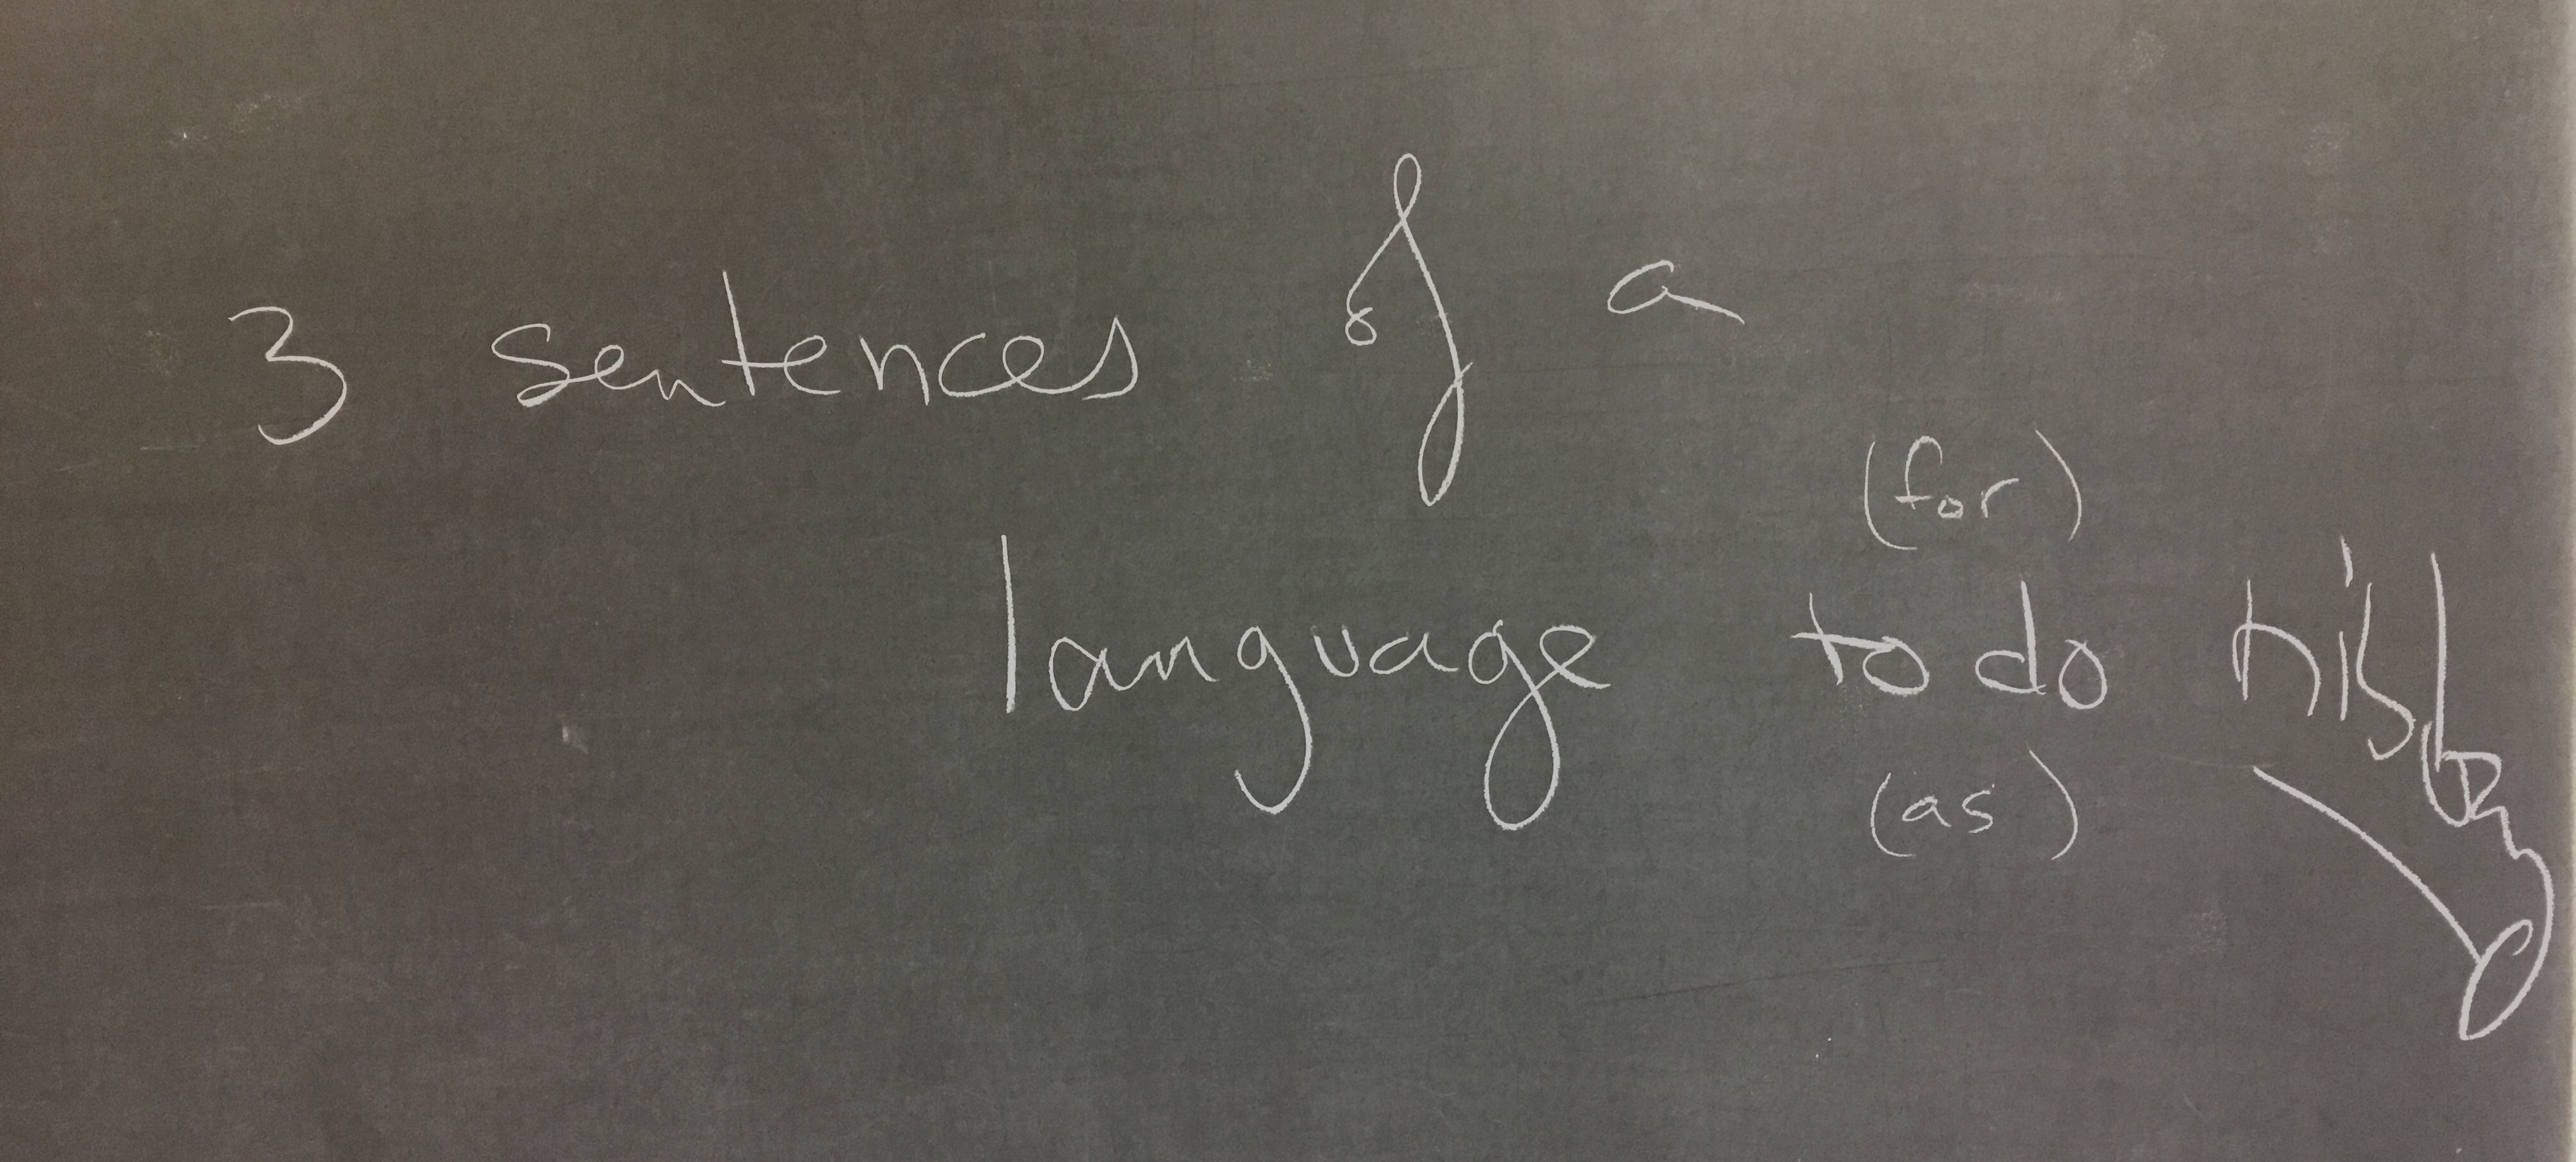 3 sentences of a
(for)
language to do history
(as)